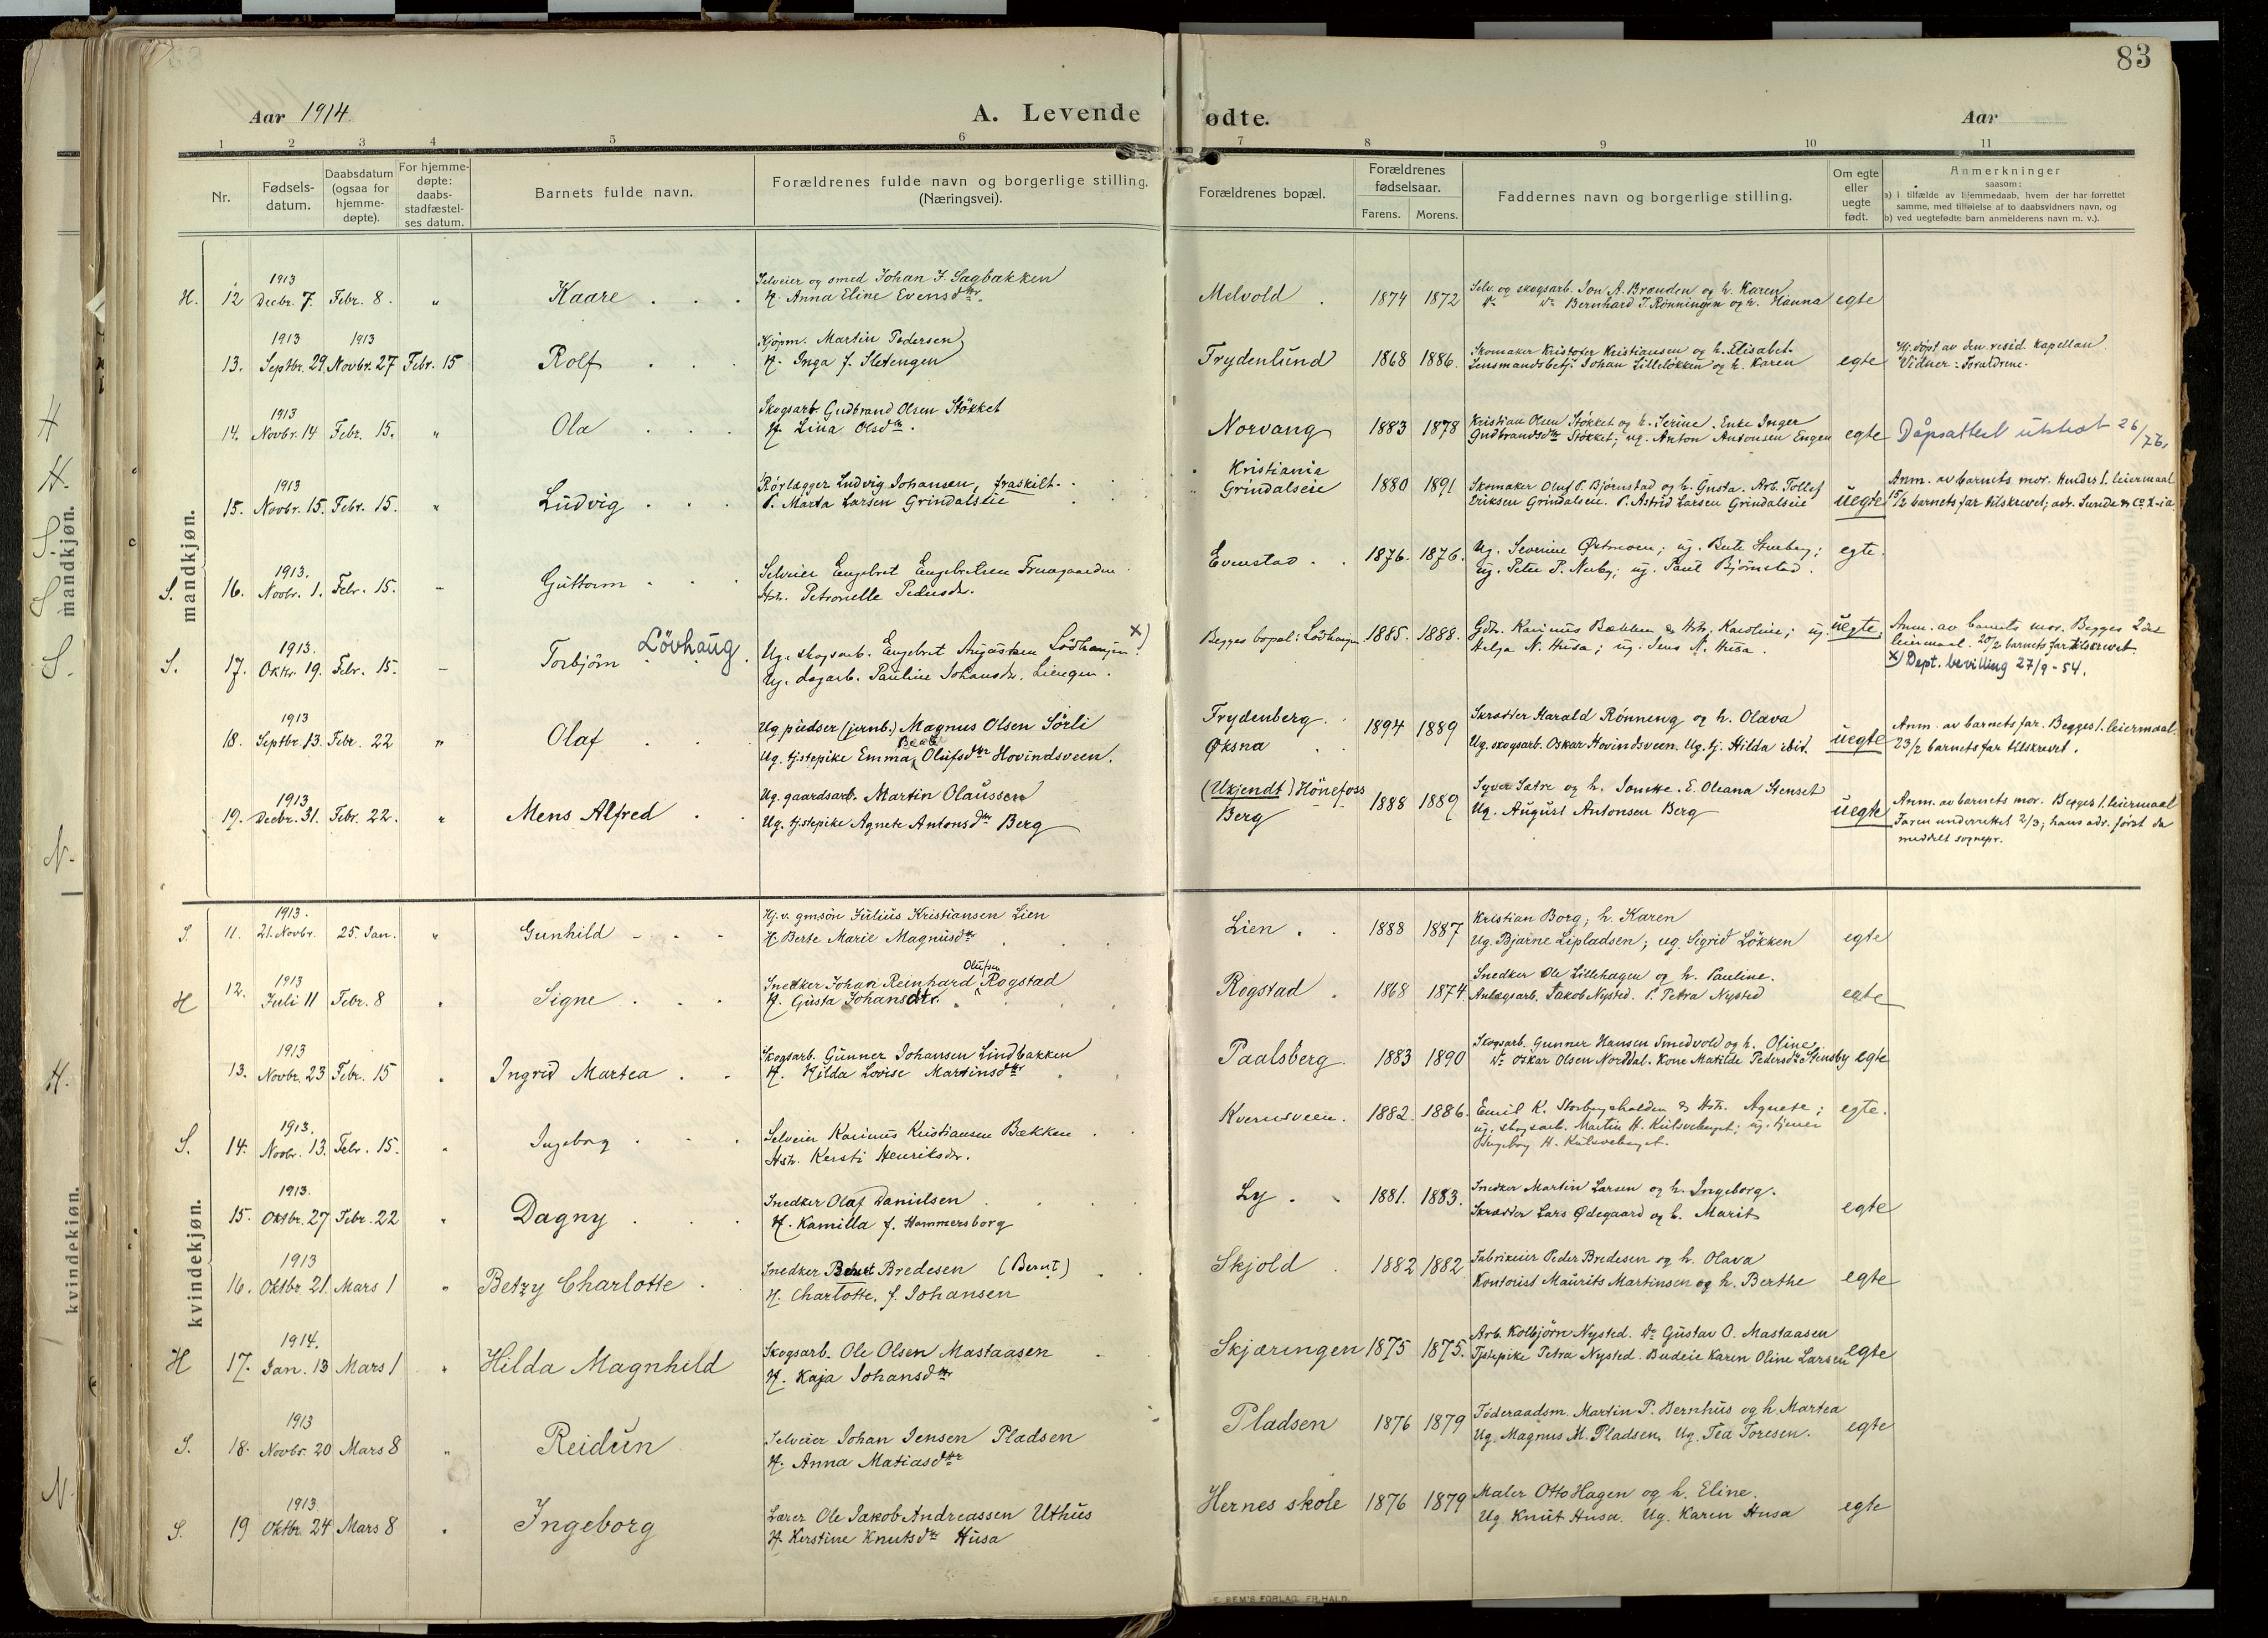 83
Aar 1914.
A. Levende
ødte.
Aar
1 2 3 4 5 6 7 8 9 10 11
Nr.
Fødsels-
datum.
Daabsdatum
(ogsaa for
hjemme-
døpte).
For hjemme-
døpte:
daabs-
stadfæstel-
ses datum.
Barnets fulde navn.
Forældrenes fulde navn og borgerlige stilling.
(Næringsvei).
Forældrenes bopæl.
Forældrenes
fødselsaar.
Farens. Morens.
Faddernes navn og borgerlige stilling.
Om egte
eller
uegte
født.
Anmerkninger
saasom:
a) i tilfælde av hjemmedaab, hvem der har forrettet
samme, med tilføielse af to daabsvidners navn, og
b) ved uegtefødte barn anmelderens navn m. v.).
mandkjøn.
H. 12 1913 Decbr. 7. Febr. 8. " Kaare
Selveier og smed Johan J. Sagbakken
H. Anna Eline Evensdtr.
Melvold 1874 1872
Selv. og skogsarb. Jon A. Brænden og h. Karen
do do Bernhard J. Rönningen og h. Hanna
egte
13. 1913 Septbr. 29. 1913 Novbr. 27 Febr. 15 Rolf
Kjøpm. Martin Pedersen
H. Inga f. Sletengen
Frydenlund 1868 1886.
Skomaker Kristofer Kristiansen og h. Elisabet.
Lensmandsbetj. Johan Lilleløkken og h. Karen
egte
Hj. döpt av den resid. kapellan
Vidner: Forældrene.
14. 1913 Novbr. 14 Febr. 15. " Ola
Skogsarb. Gudbrand Olsen Stökket
H. Lina Olsdtr.
Norvang 1883 1878
Kristian Olsen Stökket og h. Serine. Enke Inger
Gudbrandsdtr Stökket; ug. Anton Antonsen Engen
egte
Dåpsattest utstedt 26/76.
15. 1913 Novbr. 15. Febr. 15. " Ludvig
Rörlægger Ludvig Johansen, fraskilt.
P. Marta Larsen Grindalseie
Kristiania
Grindalseie
1880 1891
Skomaker Oluf P. Björnstad og h. Gusta. Arb. Tollef
Eriksen Grindalseie. P. Astrid Larsen Grindalseie
uegte
Anm. av barnets mor. Hendes 1. leiermaal
15/2 barnets far tilskrevet; adr. Sunde & Co K-ia
S. 16. 1913. Novbr. 1. Febr. 15. - Guttorm
Selveier Engebret Engebretsen Truagaarden
Hstr. Petronelle Pedersdr.
Evenstad 1876. 1876.
Ug. Severine Østmoen; ug. Berte Storberg;
ug. Peter P. Nerby; ug. Paul Bjørnstad.
egte.
S. 17. 1913. Oktr. 19. Febr. 15. - Torbjörn Lövhaug
Ug. skogsarb. Engebret Augustsen Lödhaugen x)
Ug. dagarb. Pauline Johansdr. Liengen.
Begges bopæl: Lödhaugen 1885. 1888.
Gdbr. Karinus Bækken & Hstr. Karoline; ug.
Helga N. Husa; ug. Jens N. Husa.
uegte.
Anm. av barnets mor. Begges 2det
leiermaal. 20/2 barnets far tilskrevet.
x) Dept. bevilling 27/9-54.
18. 1913 Septbr. 13. Febr. 22 " Olaf
Ug. pudser (jernb.) Magnus Olsen Sörli
Beate
Ug. tj.stepike Emma Olufsdtr Hovindsveen.
Frydenberg.
Øksna
1894 1889
Skrædder Harald Rönneng og h. Olava
Ug. skogsarb. Oskar Hovindsveen. Ug. tj. Hilda ibid.
uegte
Anm. av barnets far. Begges 1. leiermaal.
23/2 barnets far tilskrevet.
19. 1913 Decbr. 31. Febr. 22. " Mens Alfred
Ug. gaardsarb. Martin Olaussen
Ug. tj.stepike Agnete Antonsdtr Berg
(Ukjendt) Hönefoss
Berg
1888 1889
Syver Sætre og h. Jonette. E. Oleana Stenset
Ug. August Antonsen Berg
uegte
Anm. av barnets mor. Begges 1. leiermaal
Faren underrettet 2/3; hans adr. först da
meddelt sognepr.
kvindekjøn.
S. 11. 1913. 21. Novbr. 25. Jan. " Gunhild
Hj.v. gmsön Julius Kristiansen Lien
H. Berte Marie Magnusdtr
Lien 1888 1887
Kristian Borg; h. Karen
Ug. Bjarne Lipladsen; ug. Sigrid Lökken
egte
H 12. 1913 Juli 11 Febr. 8 " Signe
Olufsen
Snedker Johan Reinhard Rogstad
H. Gusta Johansdtr.
Rogstad 1868 1874.
Snedker Ole Lillehagen og h. Pauline.
Anlægsarb. Jakob Nysted. P. Petra Nysted
egte
13. 1913 Novbr. 23 Febr. 15 " Ingrid Martea
Skogsarb. Gunner Johansen Lindbakken
H. Hilda Lovise Martinsdtr
Paalsberg 1883 1890
Skogsarb. Gunner Hansen Smedvold og h. Oline
do Oskar Olsen Norddal. Kone Matilde Pedersdtr Stensby
egte
S. 14. 1913. Novbr. 13. Febr. 15. " Ingeborg
Selveier Karinus Kristiansen Bækken
Hstr. Kersti Henriksdr.
Kvernsveen. 1882. 1886.
Emil K. Storbergshalden & Hstr. Agnete;
ug. skogsarb. Martin H. Kulsveberget; ug. tjener
Ingeborg H. Kulsveberget.
egte.
15. 1913. Oktbr. 27 Febr. 22 " Dagny
Snedker Olaf Danielsen
H. Kamilla f. Hammersborg
Ly 1881. 1883.
Snedker Martin Larsen og h. Ingeborg.
Skrædder Lars Ødegaard og h. Marit
egte
16. 1913 Oktbr 21. Mars 1 " Betzy Charlotte
Snedker Bernt Bredesen (Bernt)
H. Charlotte, f. Johansen
Skjold 1882 1882
Fabrikeier Peder Bredesen og h. Olava
Kontorist Maurits Martinsen og h. Berthe
egte
H 17. 1914. Jan. 13 Mars 1 " Hilda Magnhild
Skogsarb. Ole Olsen Mastaasen
H. Kaja Johansdtr
Skjæringen 1875 1875.
Arb. Kolbjörn Nysted. do Gustav O. Mastaasen
Tjstepike Petra Nysted. Budeie Karen Oline Larsen
egte
S. 18. 1913 Novbr. 20 Mars 8 " Reidun
Selveier Johan Jensen Pladsen
H. Anna Matiasdtr
Pladsen 1876 1879
Föderaadsm. Martin P. Bernhus og h. Martea
Ug. Magnus M. Pladsen. Ug. Tea Toresen.
egte
S. 19 1913. Oktbr. 24 Mars 8 " Ingeborg
Lærer Ole Jakob Andreassen Uthus
H. Kerstine Knutsdtr Husa
Hernes skole 1876 1879
Maler Otto Hagen og h. Eline.
Ug. Knut Husa. Ug. Karen Husa
egte
mandkjøn.
kvindekjøn.